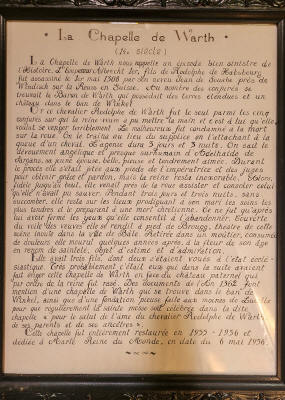 La Chapelle de Warth
(14e siècle)
La Chapelle de Warth nous rappelle un épisode bien sinistre de
l'Histoire. L'Empereur Albrecht Ier, fils de Rodolphe de Habsbourg
fut assassiné le 1er mai 1308 par son neveu Jean de Souabe près de
Windisch sur la Reuss en Suisse. Au nombre des conjurés se
trouvait le Baron de Warth qui possédait des terres étendues et un
château dans le ban de Winkel.
Or ce chevalier Rodolphe de Warth fut le seul parmi les cinq
conjurés sur qui la reine-veuve a pu mettre la main et c'est à lui qu'elle
voulut se venger terriblement. Le malheureux fut condamné à la mort
sur la roue. On le traîna au lieu du supplice en l'attachant à la
queue d'un cheval. Il agonisa dura 3 jours et 3 nuits. On sait le
dévouement angélique et presque surhumain d'Adelhaide de
Sargans, sa jeune épouse, belle, pieuse et tendrement aimée. Durant
le procès elle s'était jetée aux pieds de l'impératrice et des juges
pour obtenir grâce et pardon, mais la reine resta inexorable. Alors,
fidèle jusqu'au bout, elle venait près de la roue assister et consoler celui
qu'elle n'avait pu sauver. Pendant trois jours et trois nuits, sans
succomber, elle resta sur les lieux prodiguant à son mari les soins les
plus tendres et le préparant à une mort chrétienne. Ce ne fut qu'après
lui avoir fermé les yeux qu'elle consentit à l'abandonner. Couverte
du voile des veuves elle se rendit à pied de Brougg, théâtre de cette
scène inouïe dans la ville de Bâle. Retirée dans un moûtier, consumée
de douleurs elle mourut quelques années après, à la fleur de son âge
en renom de sainteté, objet d'estime et d'admiration.
Elle avait trois fils, dont deux s'étaient voués à l'état ecclé-
siastique. Très probablement c'était eux qui dans la suite avaient
fait ériger cette chapelle de Warth en face du château paternel qui
par ordre de la reine fut rasé. Des documents de l'an 1362 font
mention d'une chapelle de Warth qui se trouve dans le ban de
Winkel, ainsi que d'une fondation pieuse faite aux moines de Lucelle
pour que régulièrement la sainte messe soit célébrée dans la dite
chapelle « pour le salut de l'âme du chevalier Rodolphe de Warth
de ses parents et de ses ancêtres ».
Cette chapelle fut entièrement restaurée en 1955 - 1956 et
dédiée à Marie Reine du Monde, en date du 6 mai 1956.